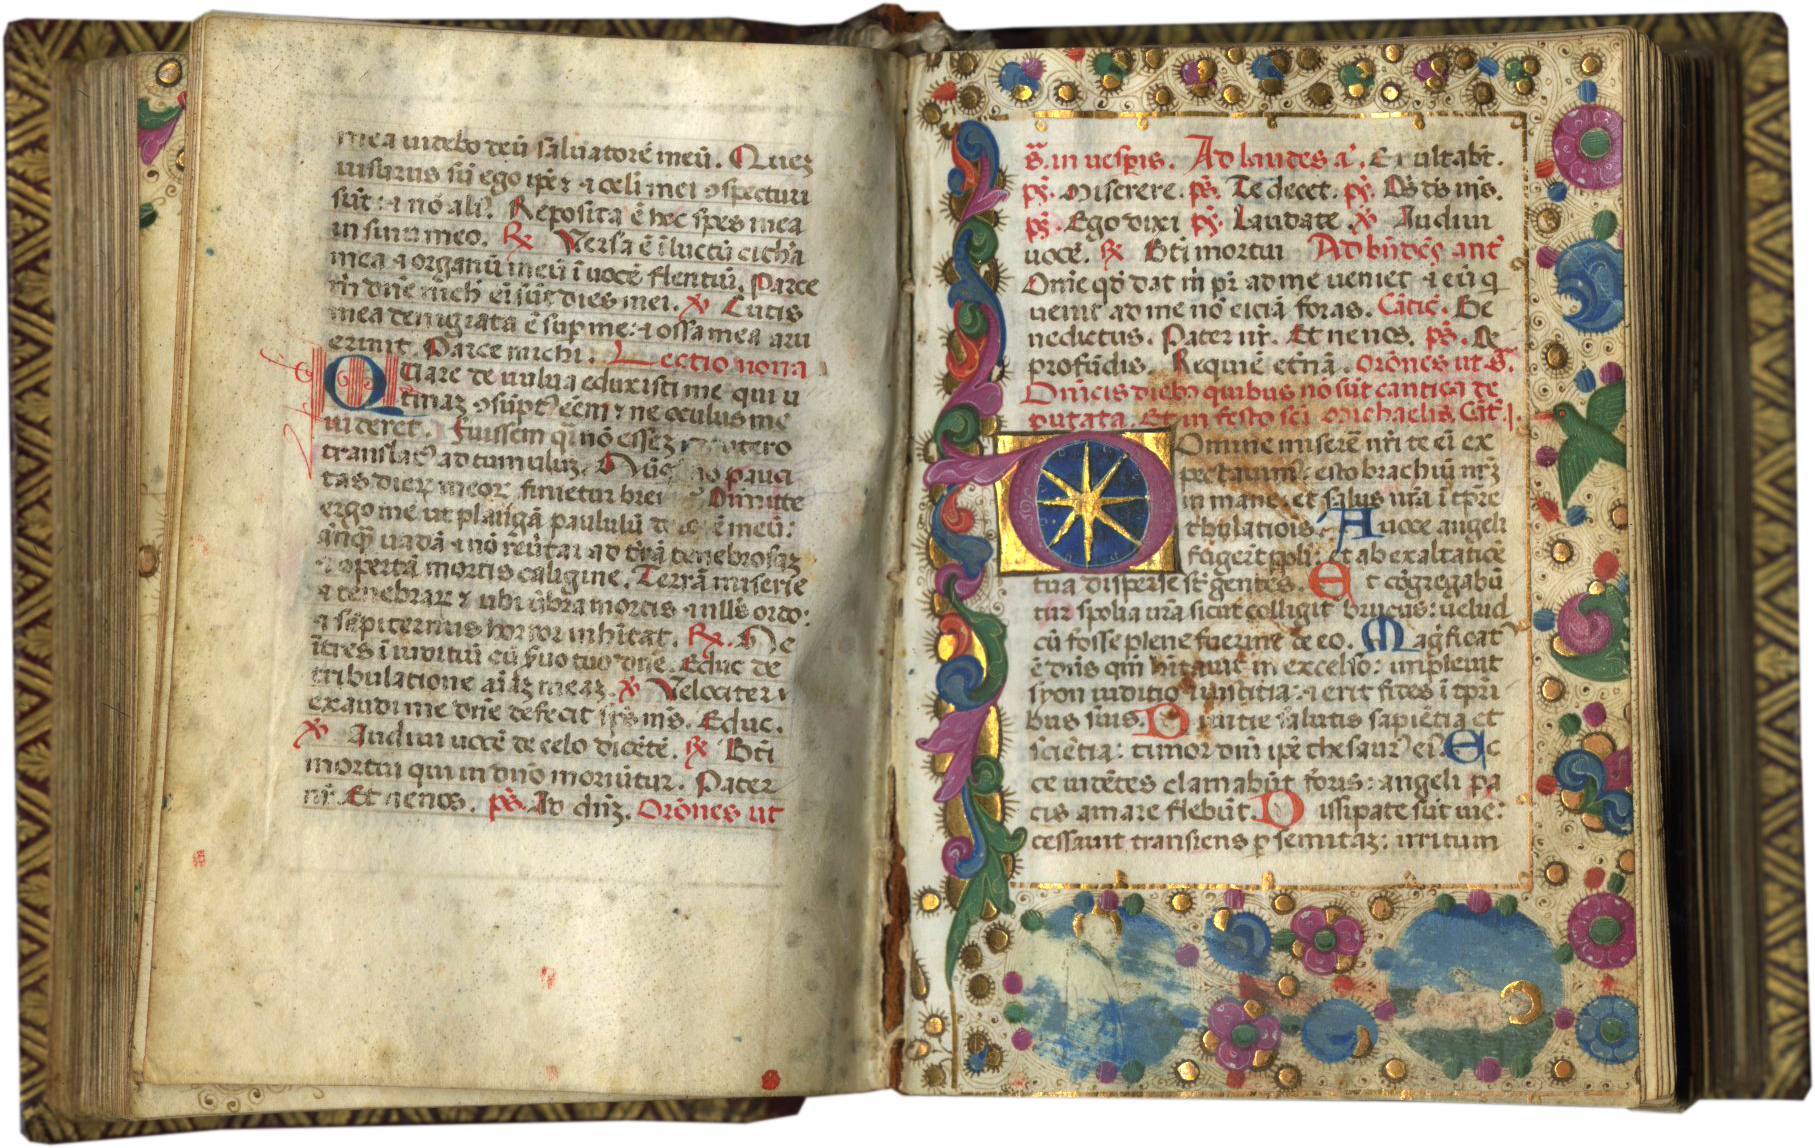 mea uidebo deū saluatorē meū. Quez
uisurus sū ego ip̄e ⁊ ⁊ oculi mei ɔspecturi
sūt: ⁊ nō aliꝰ. Reposita ē hec spes mea
in sinu meo. ℞ Versa ē ī luctū cithā
mea ⁊ organū meū ī uocē flentiū. Parce
m̄ dn̄e nich̄ ei sūt dies mei. ℣ Cutis
mea denigrata ē sup me: ⁊ ossa mea aru
erunt. Parce michi. Lectio nona
Quare de uulua eduxisti me qui u
tinaz ɔsūptꝰ eēm ⁊ ne oculus me
uideret. Fuissem q̄i nō essez utero
translatꝰ ad tumuluz. pauci
tas dieꝝ meoꝝ finietur breui Dimitte
ergo me ut plangā paululū meū:
ānq̄ƺ uadā ⁊ nō reūtar ad trā̄ tenebrosaz
⁊ opertā mortis caligine. Terrā miserie
⁊ tenebraꝝ ⁊ ubi ūbra mortis ⁊ nullꝰ ordo:
⁊ sēpiternus horror inhītat. ℞. Ne
ītres ī iuditiū cū s̄uo tuo dn̄e. Educ de
tribulatione aīaz meaz. ℣ Velociter
exaudi me dn̄e defecit sp̄s m̄s. Educ.
℣ Audiui uocē de celo dicētē. ℞ Bt̄i
mortui qui in dn̄o moriūtur. Pater
nr̄. Et nenos. ps̄. Ad dn̄ƺ. Orōnes ut
s̄. in uesp̄is. Ad laudes a̅. Exultabt̄.
ps̄. Miserere. ps̄. Te decet. ps̄. Ds̄ ds̄ ms̄.
ps̄. Ego dixi ps̄. Laudate ℣ Audiui
uocē. ℞ Bt̄i mortui Ad bn̄dcs̄ ant̄
Om̄e qd̄ dat m̄ pr̄ ad me ueniet ⁊ eū q
uenit ad me nō eiciā foras. Cātic̄. Be
nedictus. Pater nr̄. Et nenos. ps̄. De
profūdis. Requiē etn̄ā. Orōnes ut s̄.
Dn̄icis dieb̄ quibus nō sūt cantica de
putata. Et in festo sc̄i Michaelis Cāt̄.
Domine miserē nr̄i te ei ex
pectauim᷒: esto brachiū nr̄ƺ
in mane. et salus nr̄a ī tp̄re
tribulatiōis. A uoce angeli
fugerūt ppl̄i: et ab exaltatiōe
tua disperse st̄ gentes. Et cōgregabū
tur spolia ur̄a sicut colligit brucus: uelud
cū fosse plene fuerint de eo. Magn̄ficatꝰ
ē dn̄s qm̄ hītauit in excelso: impleuit
syon iuditio ⁊ iustitia: ⁊ erit fides ī tp̄ri
bus suis. Diuitie salutis sapiētia et
sciētia: timor dn̄i ip̄e thesaurꝰ eiꝰ. Ec
ce uidētes clamabūt foris: angeli pa
cis amare flebūt. Dissipate sūt uie:
cessauit transiens ꝑ semitaz: irritum